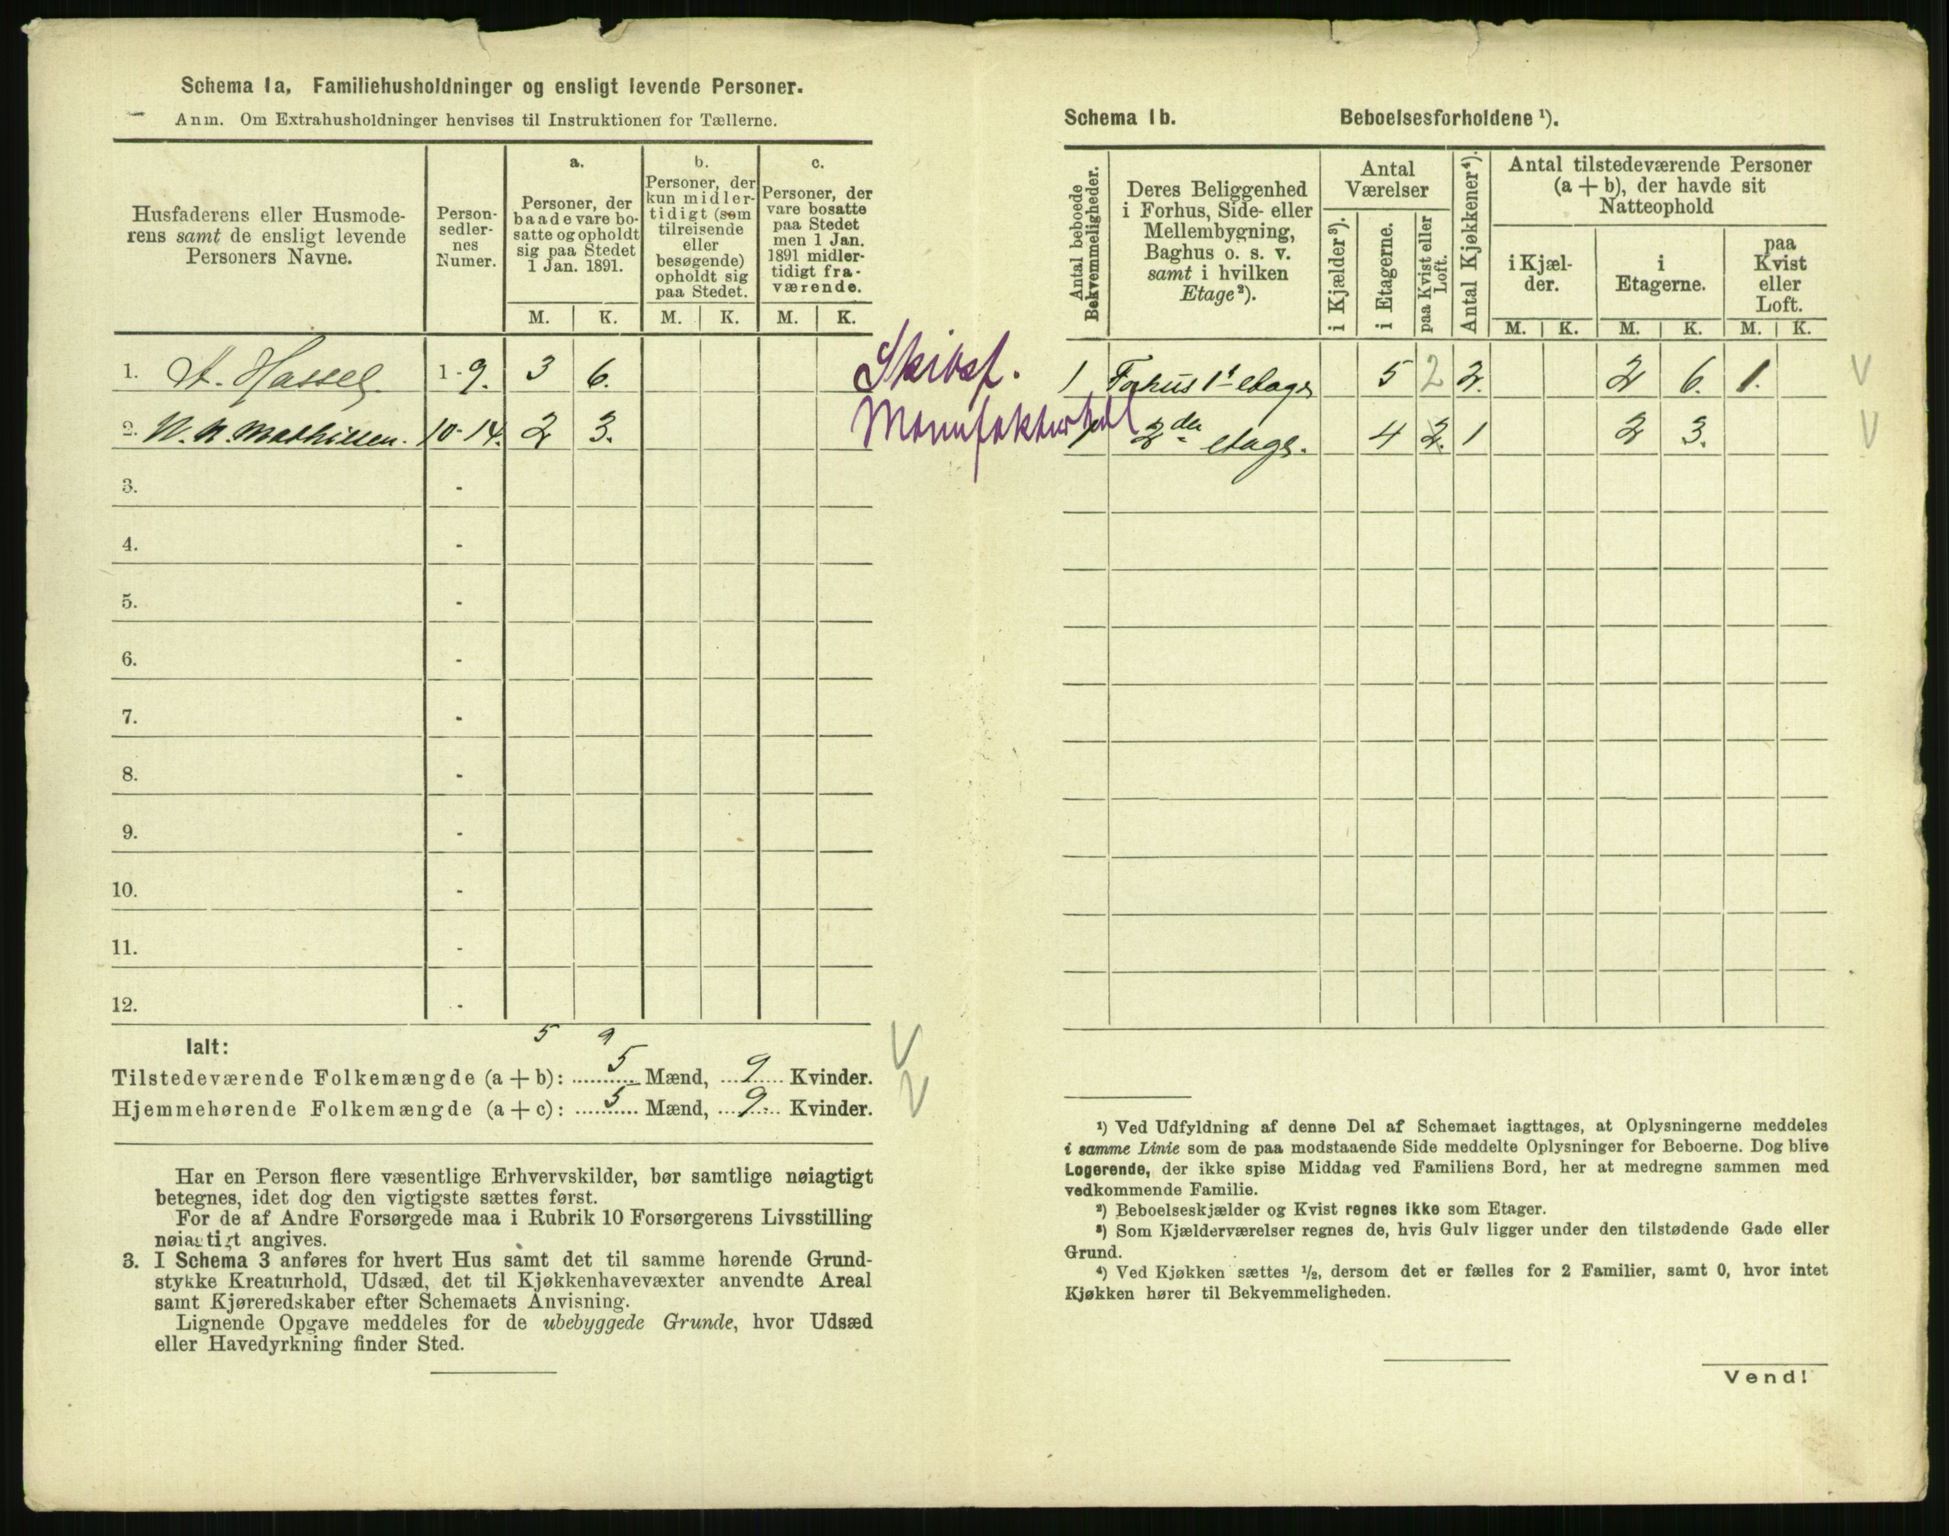 Schema 1a, Familiehusholdninger og ensligt levende Personer.
Anm. Om Extrahusholdninger henvises til Instruktionen for Tællerne.
Husfaderens eller Husmode-
rens samt de ensligt levende
Personers Navne.
Person-
sedler-
nes
Numer.
a.
Personer, der
baade vare bo-
satte og opholdt
sig paa Stedet
1 Jan. 1891.
b.
Personer, der
kun midler-
tidigt (som
tilreisende
eller
besøgende)
opholdt sig
paa Stedet.
c.
Personer, der
vare bosatte
paa Stedet
men 1 Jan.
1891 midler-
tidigt fra-
værende.
M. K. M. K. M. K.
1. A. Hassel. 1-9. 3 6. Skibsf.
2. N. N. Mathissen. 10-14. 2 3. Manufakturhdl
3. -
4. -
5. -
6. -
7. -
8. -
9. -
10. -
11. -
12. -
5 9
Ialt:
Tilstedeværende Folkemængde (a + b): 5 Mænd, 9 Kvinder.
Hjemmehørende Folkemængde (a + c): 5 Mænd, 9. Kvinder.
Har en Person flere væsentlige Erhvervskilder, bør samtlige nøiagtigt
betegnes, idet dog den vigtigste sættes først.
For de af Andre Forsørgede maa i Rubrik 10 Forsørgerens Livsstilling
nøiagtigt angives.
3. I Schema 3 anføres for hvert Hus samt det til samme hørende Grund-
stykke Kreaturhold, Udsæd, det til Kjøkkenhavevæxter anvendte Areal
samt Kjøreredskaber efter Schemaets Anvisning.
Lignende Opgave meddeles for de ubebyggede Grunde, hvor Udsæd
eller Havedyrkning finder Sted.
Schema 1b. Beboelsesforholdene ¹).
Antal beboede
Bekvemmeligheder.
Deres Beliggenhed
i Forhus, Side- eller
Mellembygning,
Baghus o. s. v.
samt i hvilken
Etage²).
Antal
Værelser
i Kjælder³).
i Etagerne.
paa Kvist eller
Loft.
Antal Kjøkkener⁴).
Antal tilstedeværende Personer
(a + b), der havde sit
Natteophold
i Kjæl-
der.
i
Etagerne.
paa
Kvist
eller
Loft.
M. K. M. K. M. K.
1 Forhus 1ˢᵗ etage 5 2 2. 2 6. 1. V
1 2den etage. 4 2. 1 2 3. V
¹) Ved Udfyldning af denne Del af Schemaet iagttages, at Oplysningerne meddeles
i samme Linie som de paa modstaaende Side meddelte Oplysninger for Beboerne. Dog blive
Logerende, der ikke spise Middag ved Familiens Bord, her at medregne sammen med
vedkommende Familie.
²) Beboelseskjælder og Kvist regnes ikke som Etager.
³) Som Kjælderværelser regnes de, hvis Gulv ligger under den tilstødende Gade eller
Grund.
⁴) Ved Kjøkken sættes ½, dersom det er fælles for 2 Familier, samt 0, hvor intet
Kjøkken hører til Bekvemmeligheden.
Vend!